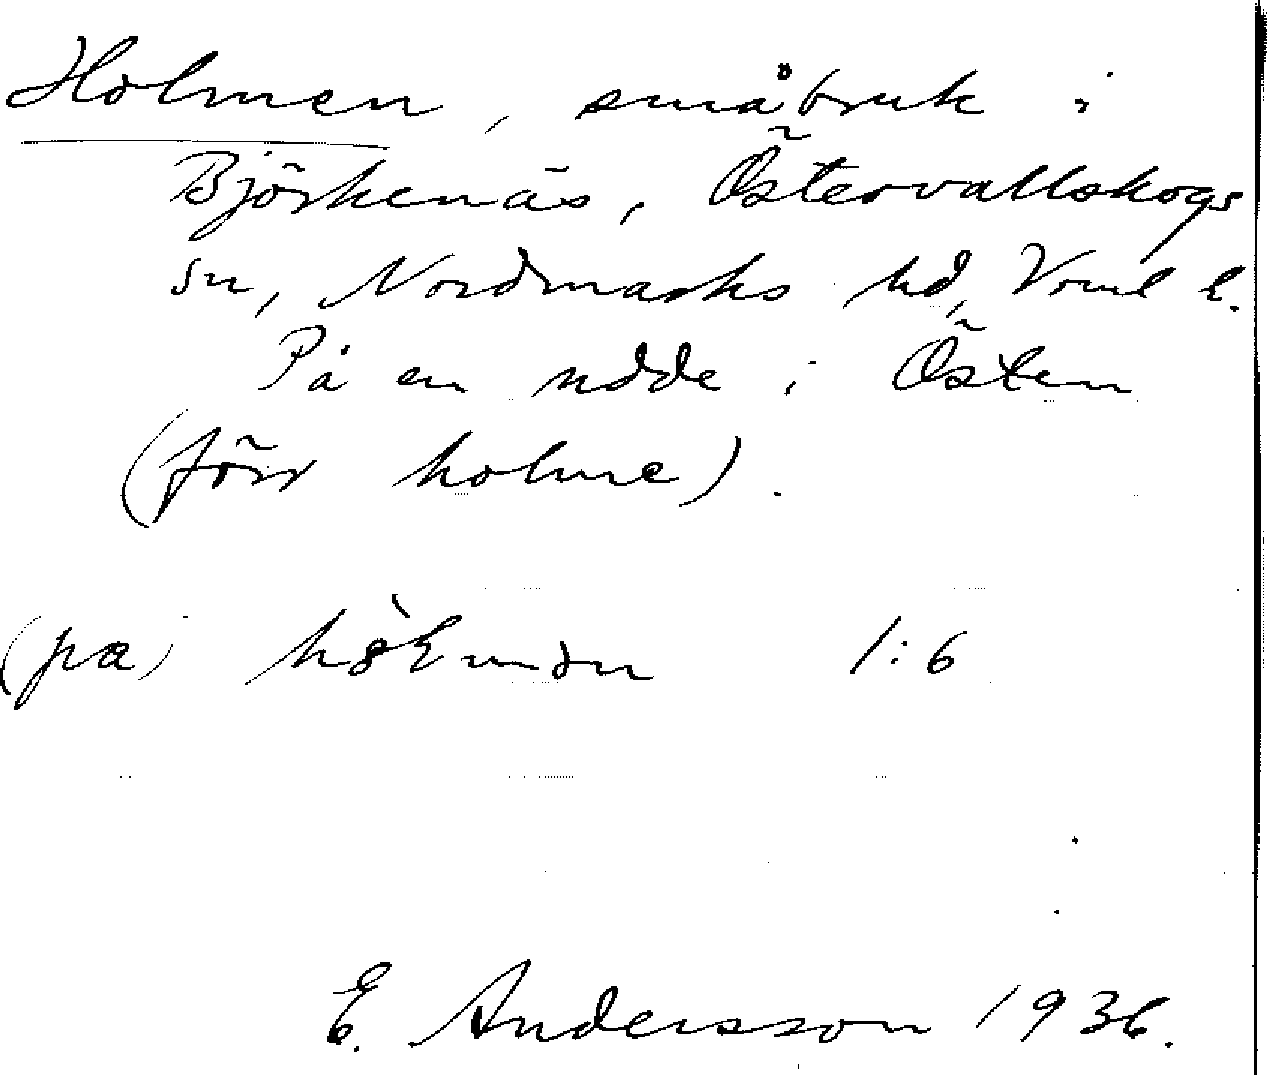 Holmen, småbruk i
Björkenäs, Östervallskogs
sn, Nordmarks hd, Vrml l.
På en udde i Östen
(förr holme).
(pa) 1:6
E. Andersson 1936.